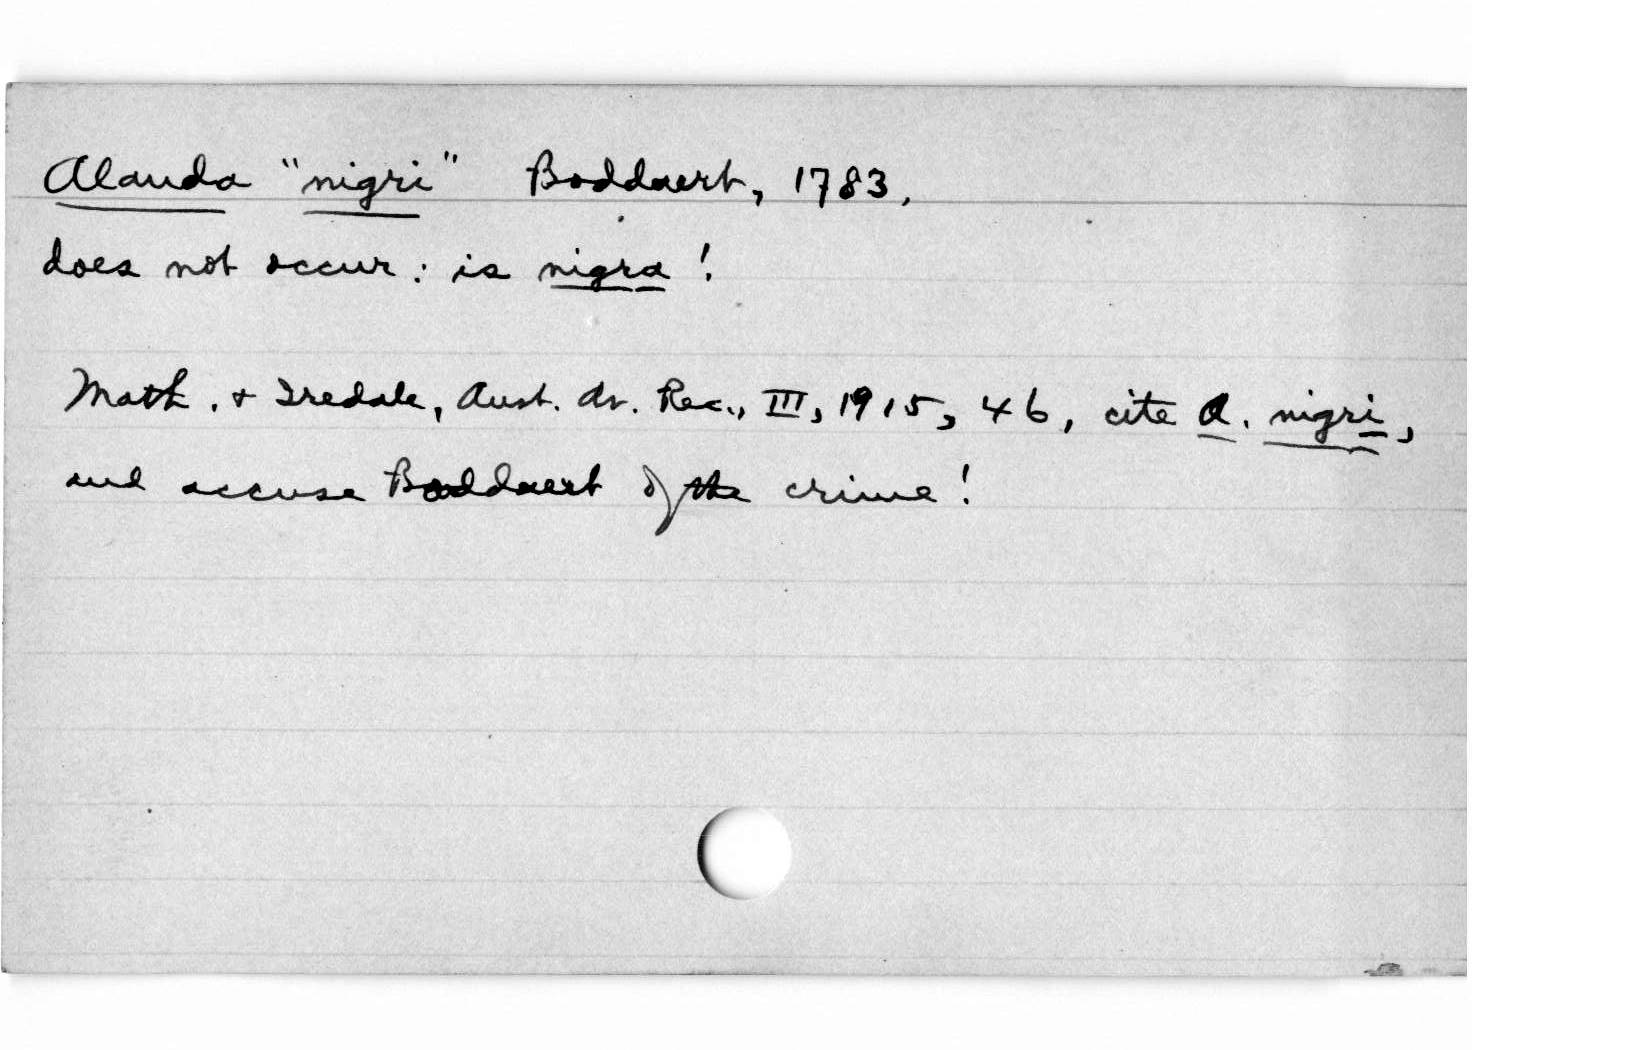 Alauda "nigri" Boddaert, 1783,
does not occur: is nigra!
Math. & Iredale, Aust. Av. Rec., III, 1915, 46, cite A. nigri,
and accuse Boddaert of the crime!